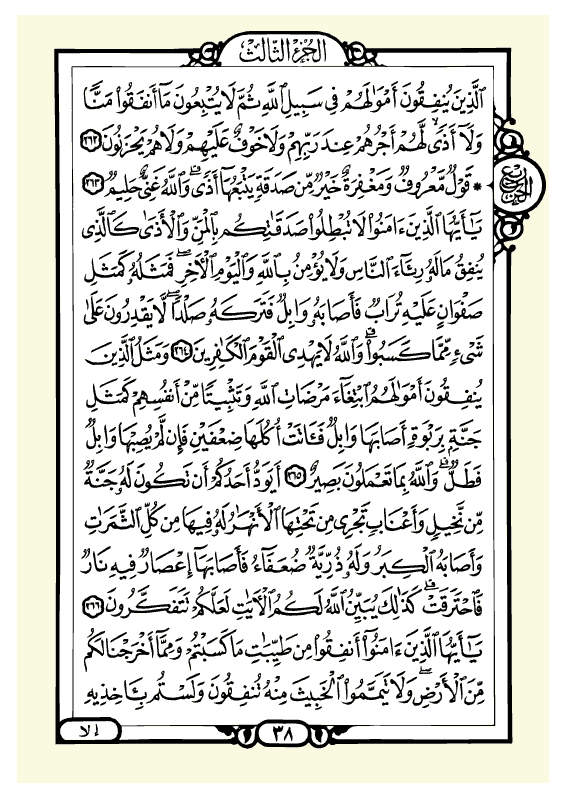 الجزء الثالث
الَّذِينَ يُنفِقُونَ أَمْوَٰلَهُمْ فِى سَبِيلِ ٱللَّهِ ثُمَّ لَا يُتْبِعُونَ مَآ أَنفَقُوا۟ مَنًّا
وَلَآ أَذًىۙ لَّهُمْ أَجْرُهُمْ عِندَ رَبِّهِمْ وَلَا خَوْفٌ عَلَيْهِمْ وَلَا هُمْ يَحْزَنُونَ ٢٦٢
* قَوْلٌ مَّعْرُوفٌ وَمَغْفِرَةٌ خَيْرٌ مِّن صَدَقَةٍ يَتْبَعُهَآ أَذًىۗ وَٱللَّهُ غَنِىٌّ حَلِيمٌ ٢٦٣
يَٰٓأَيُّهَا ٱلَّذِينَ ءَامَنُوا۟ لَا تُبْطِلُوا۟ صَدَقَٰتِكُم بِٱلْمَنِّ وَٱلْأَذَىٰ كَٱلَّذِى
يُنفِقُ مَالَهُۥ رِئَآءَ ٱلنَّاسِ وَلَا يُؤْمِنُ بِٱللَّهِ وَٱلْيَوْمِ ٱلْءَاخِرِۖ فَمَثَلُهُۥ كَمَثَلِ
صَفْوَانٍ عَلَيْهِ تُرَابٌ فَأَصَابَهُۥ وَابِلٌ فَتَرَكَهُۥ صَلْدًاۖ لَّا يَقْدِرُونَ عَلَىٰ
شَىْءٍ مِّمَّا كَسَبُوا۟ۗ وَٱللَّهُ لَا يَهْدِى ٱلْقَوْمَ ٱلْكَٰفِرِينَ ٢٦٤ وَمَثَلُ ٱلَّذِينَ
يُنفِقُونَ أَمْوَٰلَهُمُ ٱبْتِغَآءَ مَرْضَاتِ ٱللَّهِ وَتَثْبِيتًا مِّنْ أَنفُسِهِمْ كَمَثَلِ
جَنَّةٍۭ بِرَبْوَةٍ أَصَابَهَا وَابِلٌ فَـَٔاتَتْ أُكُلَهَا ضِعْفَيْنِ فَإِن لَّمْ يُصِبْهَا وَابِلٌ
فَطَلٌّۗ وَٱللَّهُ بِمَا تَعْمَلُونَ بَصِيرٌ ٢٦٥ أَيَوَدُّ أَحَدُكُمْ أَن تَكُونَ لَهُۥ جَنَّةٌ
مِّن نَّخِيلٍ وَأَعْنَابٍ تَجْرِى مِن تَحْتِهَا ٱلْأَنْهَٰرُ لَهُۥ فِيهَا مِن كُلِّ ٱلثَّمَرَٰتِ
وَأَصَابَهُ ٱلْكِبَرُ وَلَهُۥ ذُرِّيَّةٌ ضُعَفَآءُ فَأَصَابَهَآ إِعْصَارٌ فِيهِ نَارٌ
فَٱحْتَرَقَتْۗ كَذَٰلِكَ يُبَيِّنُ ٱللَّهُ لَكُمُ ٱلْءَايَٰتِ لَعَلَّكُمْ تَتَفَكَّرُونَ ٢٦٦
يَٰٓأَيُّهَا ٱلَّذِينَ ءَامَنُوٓا۟ أَنفِقُوا۟ مِن طَيِّبَٰتِ مَا كَسَبْتُمْ وَمِمَّآ أَخْرَجْنَا لَكُم
مِّنَ ٱلْأَرْضِۖ وَلَا تَيَمَّمُوا۟ ٱلْخَبِيثَ مِنْهُ تُنفِقُونَ وَلَسْتُم بِـَٔاخِذِيهِ
٣٨
إلا